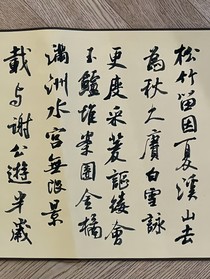 松竹留因夏溪山去
為秋久賡白雪詠
更度采菱謳縷會
玉鱸堆案團金橘
滿洲水宮無限景
載与謝公遊半歲